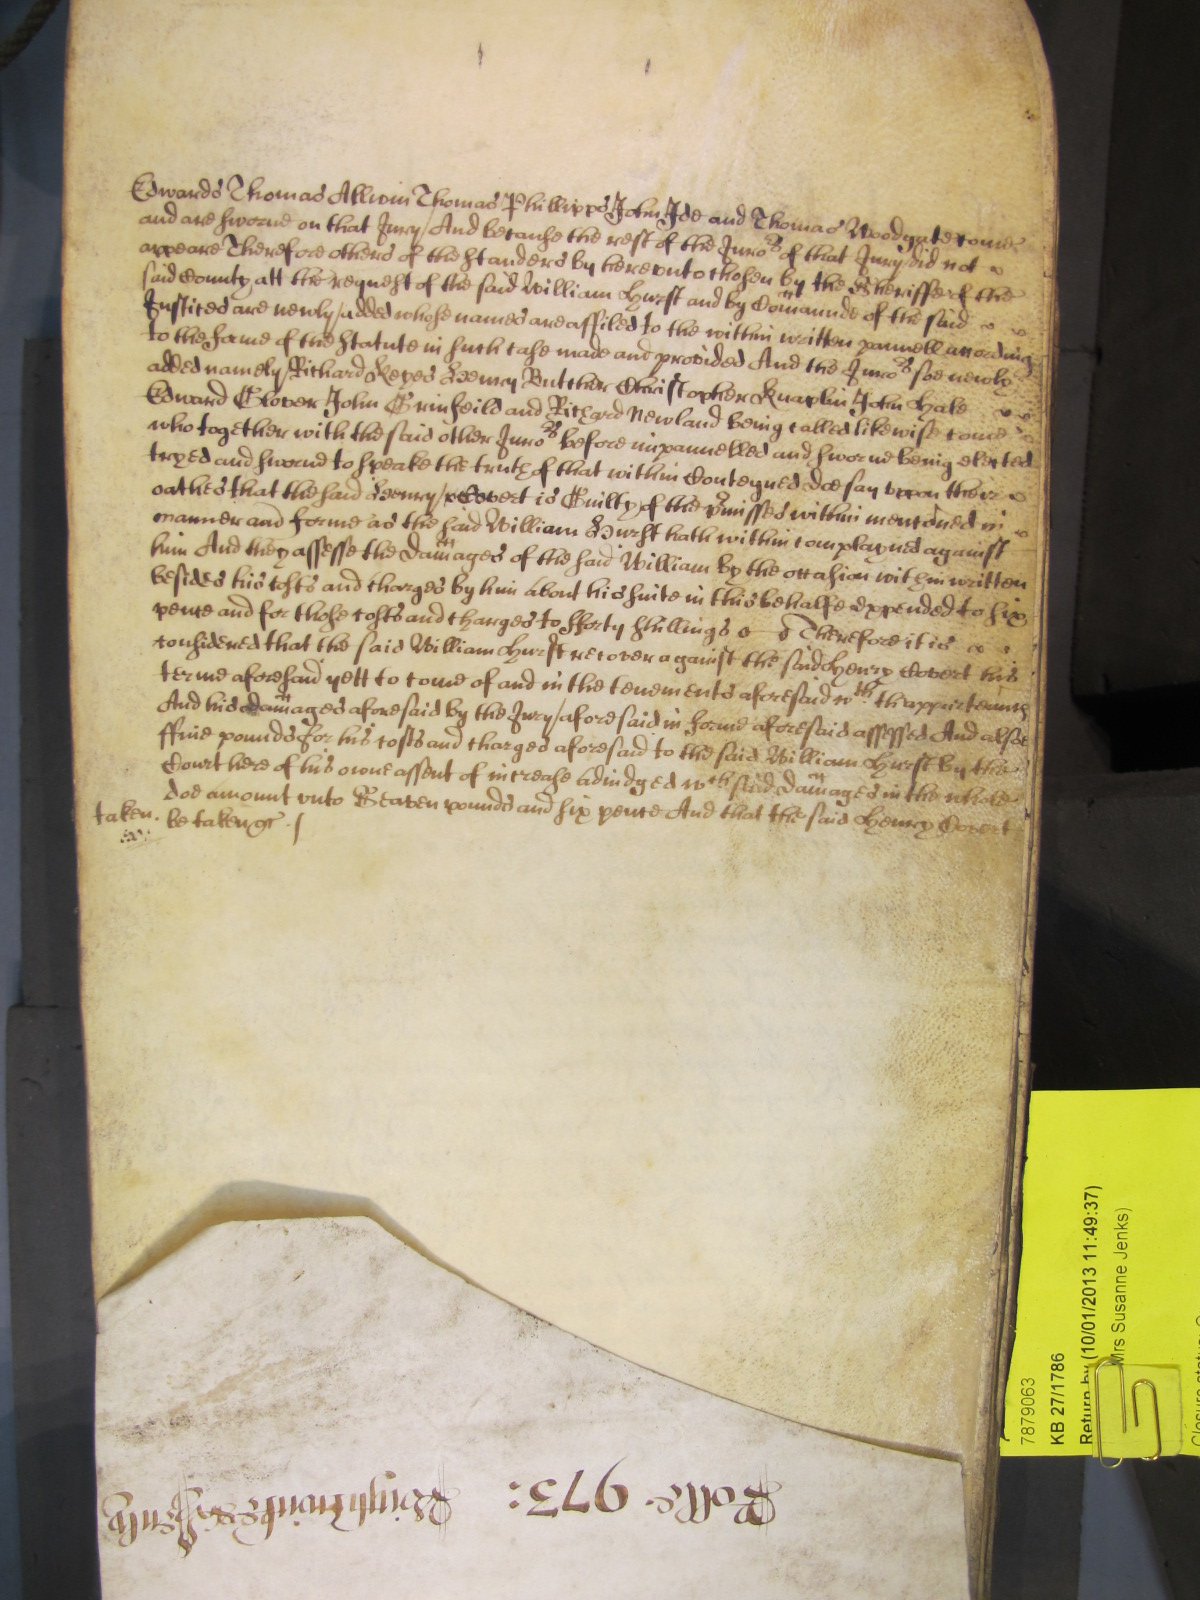 Edwards Thomas Allwin Thomas Phillipps John Ide and Thomas Woodgate come
and are sworne on that Jury And because the rest of the Juro.rs of that Jury did not
appeare Therefore others of the standers by hereunto chosen by the Sheriffe of the
said County att the request of the said William Hurst and by Comaunde of the said
Justices are newly added whose names are affiled to the within written pannell according
to the forme of the statute in such case made and provided And the Juro.rs soe newly
added namely Richard Keyes Henry Butcher Christopher Knaplin John Hale
Edward Glover John Grinfeild and Richard Newland being called likewise come
who together with the said other Juro.rs before inpannelled and sworne being elected
tryed and sworne to speake the truth of that within Conteyned doe say uppon their
oathes that the said Henry Covert is Guilty of the p.rmisses within mentoned in
manner and forme as the said William Hurst hath within complayned against
him And they assesse the damages of the said William by the occasion within written
besides his costs and charges by him about his suite in this behalfe expended to six
pence and for those costs and charges to fforty shillings Therefore it is
considered that the said William Hurst recover against the said Henry Covert his
terme aforesaid yett to come of and in the tenements aforesaid w.th thappurtennces
And his damages aforesaid by the Jury aforesaid in forme aforesaid assessed And alsoe
ffive pounds for his costs and charges aforesaid to the said William Hurst by the
Court here of his owne assent of increase adiudged w.ch said damages in the whole
doe amount unto Seaven pounds and six pence And that the said Henry Covert
taken. be taken &c.
Rolle 973:
7879063
KB 27/1786
Return by (10/01/2013 11:49:37)
Mrs Susanne Jenks)